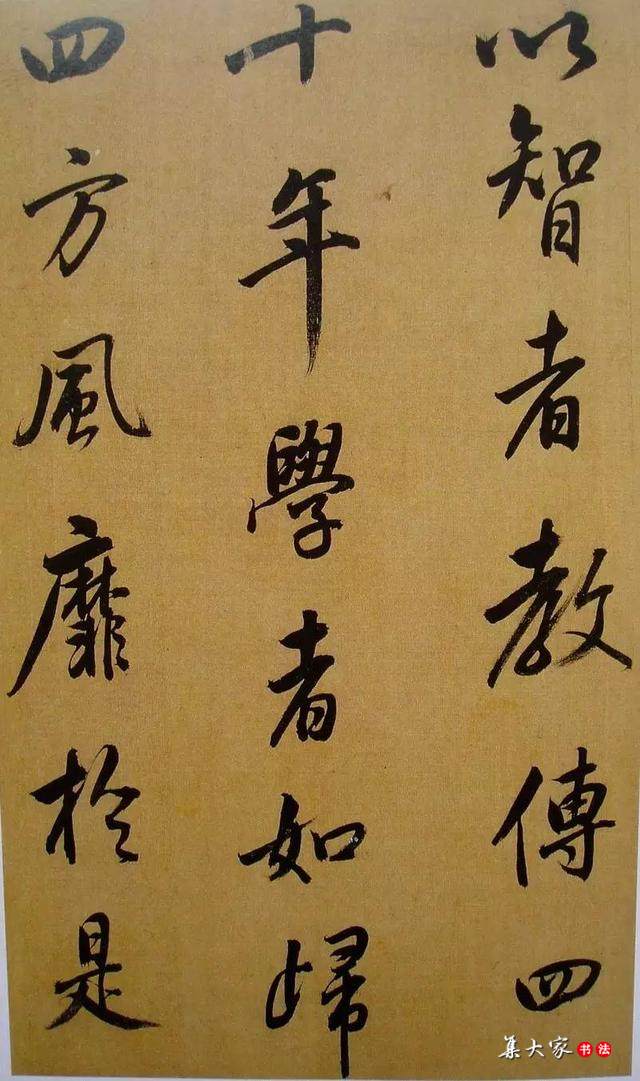 以智者教傳四
十年學者如歸
四方風靡於是
集大家书法